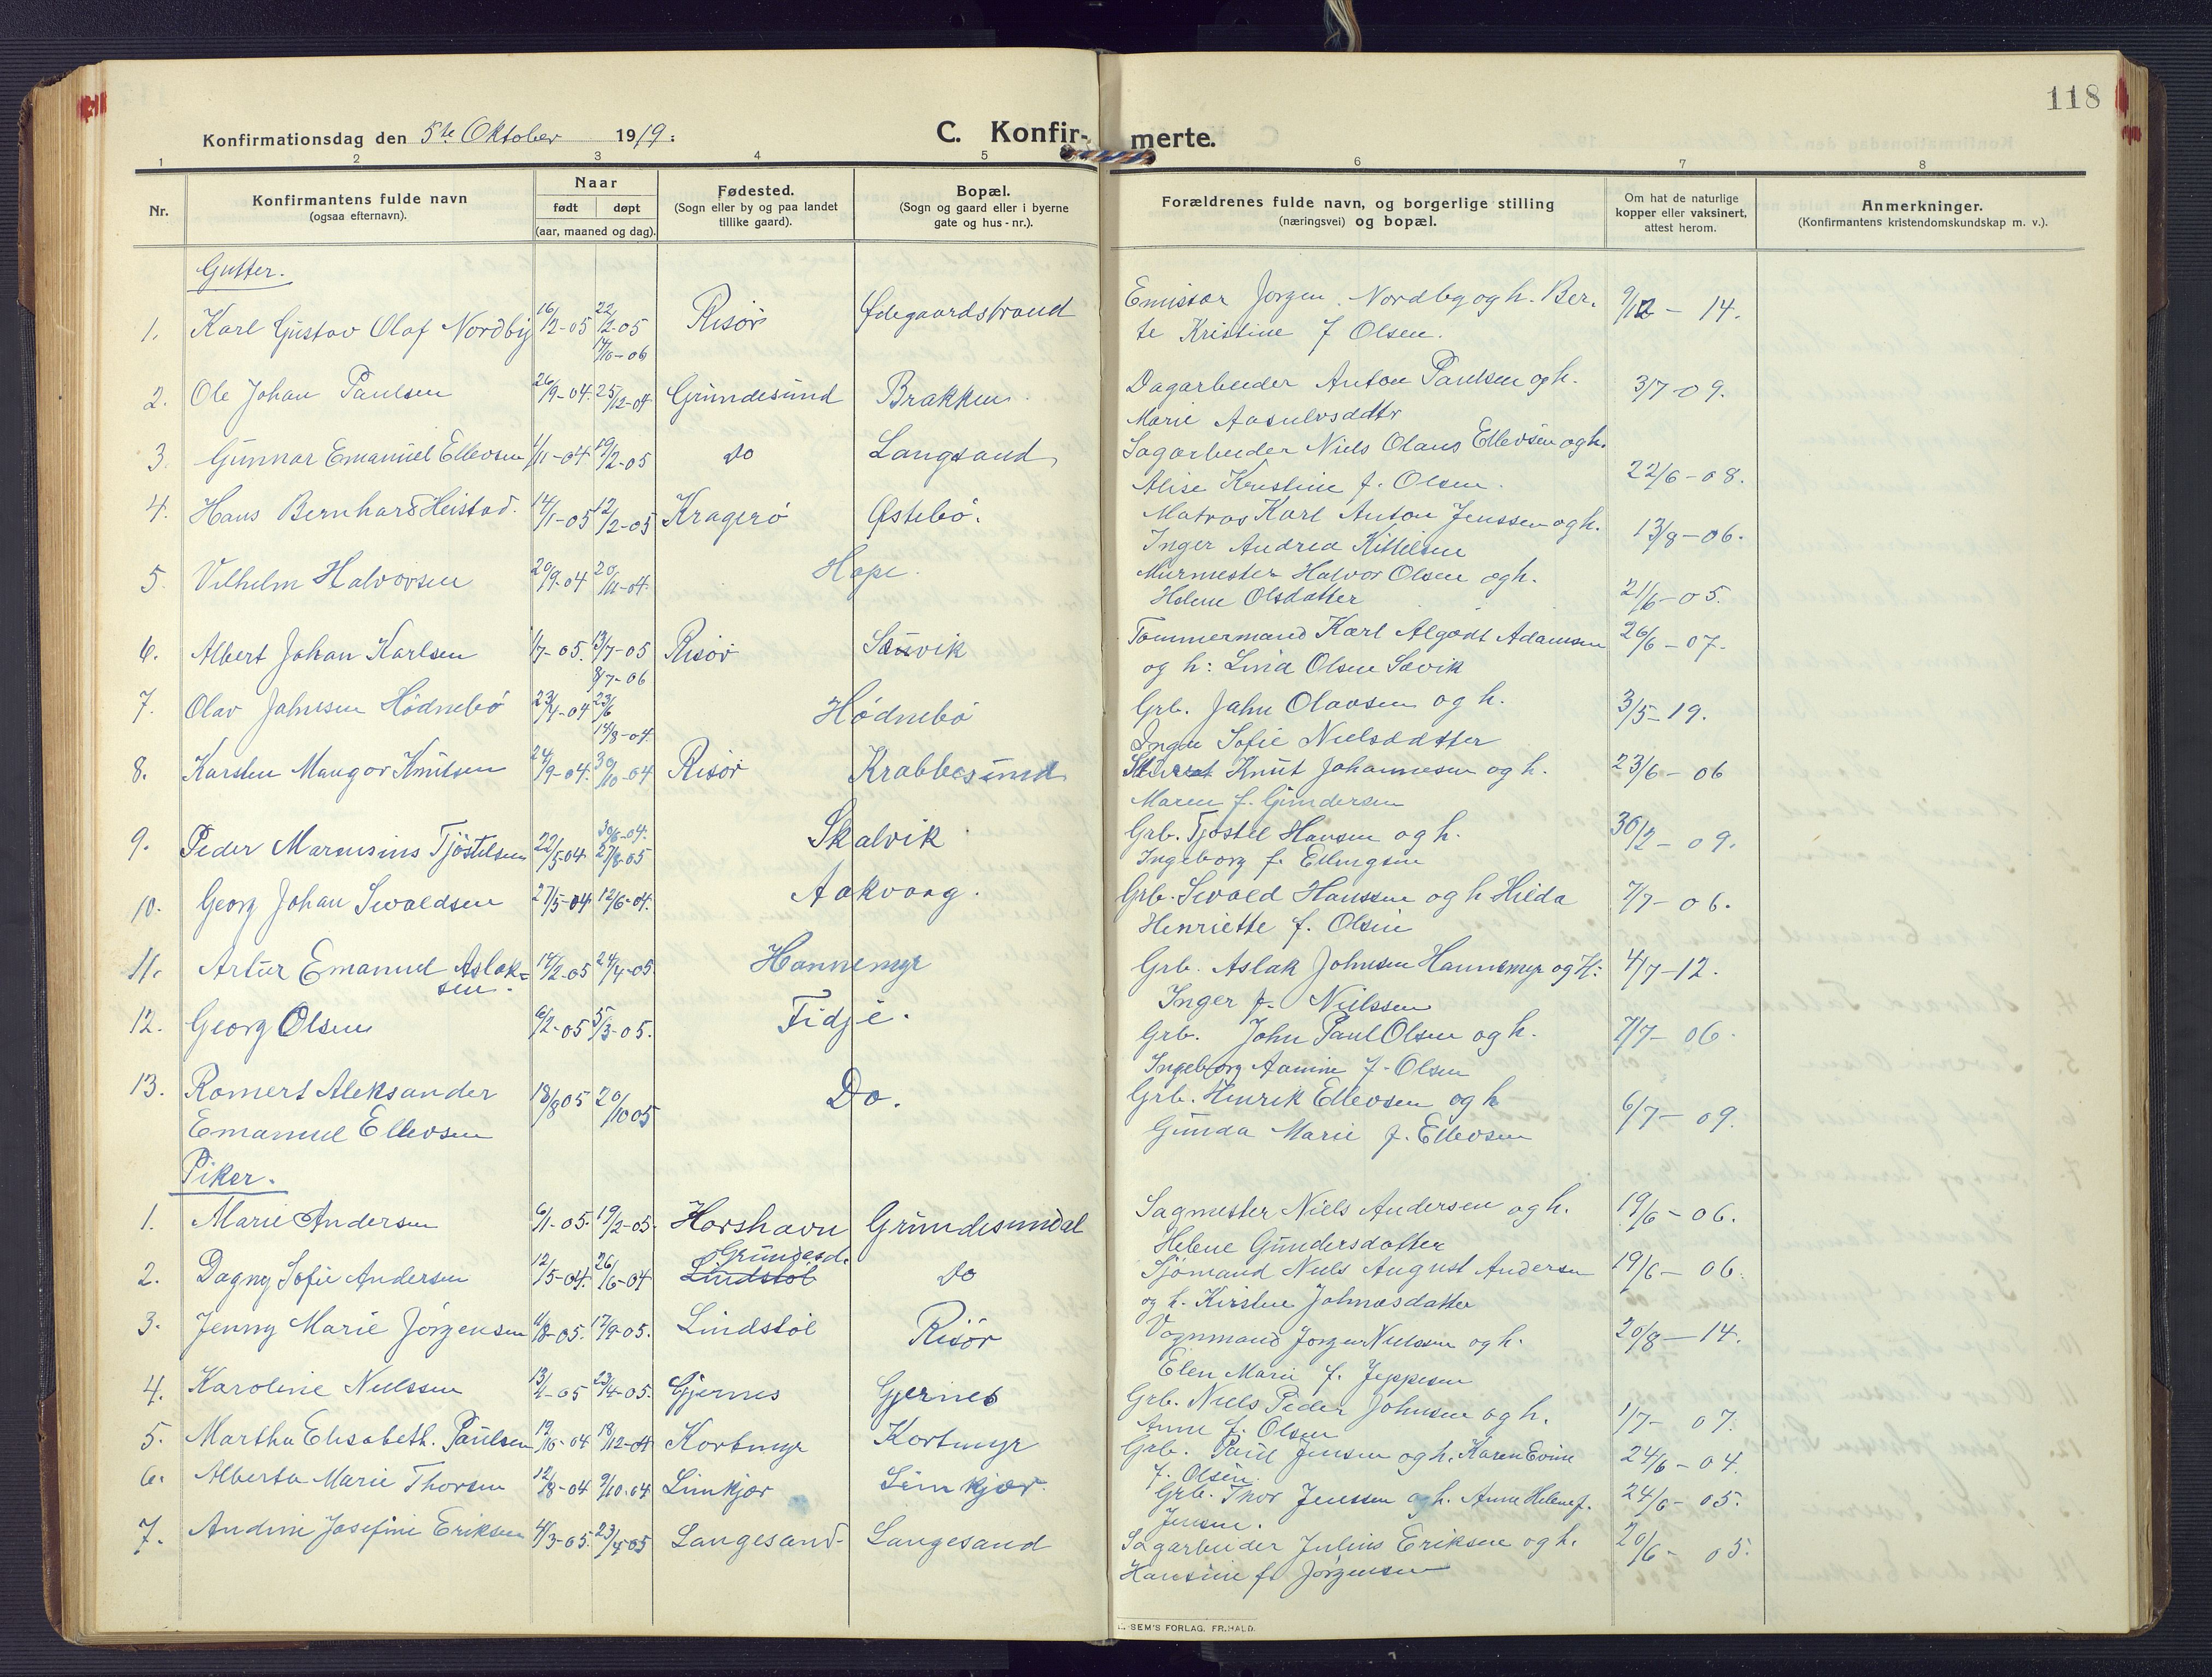 118
Konfirmationsdag den 5te Oktober 1919:
C. Konfir- merte.
1 2 3 4 5 6 7 8
Nr.
Konfirmantens fulde navn
(ogsaa efternavn).
Naar
født døpt
(aar, maaned og dag).
Fødested.
(Sogn eller by og paa landet
tillike gaard).
Bopæl.
(Sogn og gaard eller i byerne
gate og hus-nr.).
Forældrenes fulde navn, og borgerlige stilling
(næringsvei) og bopæl.
Om hat de naturlige
kopper eller vaksinert,
attest herom.
Anmerkninger.
(Konfirmantens kristendomskundskap m. v.).
Gutter.
1. Karl Gustav Olaf Nordby 16/2-05 22/2-05 Risør Ødegaardstrand Emissær Jørgen Nordby og h. Ber- 9/12 - 14.
17/10-06 te Kristine f Olsen.
2. Ole Johan Paulsen 26/9-04. 25/12-04 Grundesund Brakken Dagarbeider Anton Paulsen og h. 3/7-09.
Marie Aasulvsddtr
3. Gunnar Emanuel Ellevsen 1/11-04 19/2-05 do Langsand Sagarbeider Niels Olaus Ellevsen og h.
Alise Kristine f. Olsen. 22/6-08.
4. Hans Bernhard Heistad. 14/1-05 12/2-05 Kragerø Østebø. Matros Karl Anton Jenssen og h. 13/8-06.
Inger Andrea Kittelsen
5. Vilhelm Halvorsen 20/9-04 20/11-04. Hope. Murmester Halvor Olsen og h. 21/6-05.
Helene Olsdatter
6. Albert Johan Karlsen 1/7-05. 13/7-05 Risør Sauvik Tømmermand Karl Algodt Adamsen 26/6-07.
9/7-06 og h: Lina Olsen Savik
7. Olav Johnsen Hødnebø 23/4-04 23/6 Hødnebø Grb. John Olavsen og h. 3/5-19.
14/8-04. Inger Sofie Nielsddtter
8. Karsten Mangor Knutsen 24/9-04. 30/10-04 Risør Krabbesund Knut Johannesen og h. 23/6-06
Maren f. Gundersen
9. Peder Marensius Tjøstelsen 22/5-04 30/6-04. 27/8-05 Skalvik Grb. Tjøstel Hansen og h. 30/12-09.
Ingeborg f. Ellingsen
10. Georg Johan Sevaldsen 27/5-04 12/6-04. Aakvaag. Grb. Sevald Hanssen og h Hilda 7/7-06.
Henriette f. Olsen
11. Artur Emanuel Aslak= 14/2-05 24/4-05 Hannemyr Grb. Aslak Johnsen Hannemyr og H: 4/7-12.
sen. Inger f. Nielssen
12. Georg Olsen 6/2-05 5/3-05. Fidje. Grb. John Paul Olsen og h. 7/7-06.
Ingeborg Aanine f. Olsen
13. Romert Aleksander 18/8 05 20/10 05 Do. Grb. Henrik Ellevsen og h 6/7-09.
Emanuel Ellevsen Gunda Marie f. Ellevsen
Piker.
1. Marie Andersen 6/1-05. 19/2-05. Horshavn Grundesundal Sagmester Niels Andersen og h. 19/6-06.
Helene Gundersdatter
Grundesd.
2. Dagny Sofie Andersen 12/5-04. 26/6-04 Lindstøl do Sjømand Niels August Andersen 19/6-06.
og h. Kirstine Johnasdatter
3. Jenny Marie Jørgensen 11/8-05. 17/9-05. Lindstøl Risør Vognmand Jørgen Nielssen og h. 20/8-14.
Elen Marie f. Jeppesen
4. Karoline Nielssen 13/4-05 23/4-05. Gjernes Gjernes Grb. Niels Peder Johnsen og h. 1/7-07.
Anne f. Olsen
5. Martha Elisabeth. Paulsen 19/10-04 18/12-04 Kortmyr Kortmyr Grb. Paul Jensen og h. Karen Evine 24/6-04.
f. Olsen
6. Alberta Marie Thorsen 12/8-04 9/10-04 Limkjær Limkjær. Grb. Thor Jenssen og h. Anne Helene f. 24/6-05.
Jensen.
7. Andrine Josefine Eriksen 4/3-05. 23/4-05 Langesand- Langesand Sagarbeider Julius Eriksen og h. 20/6-05.
Hansine f. Jørgensen
SEM'S FORLAG, FR.HALD.